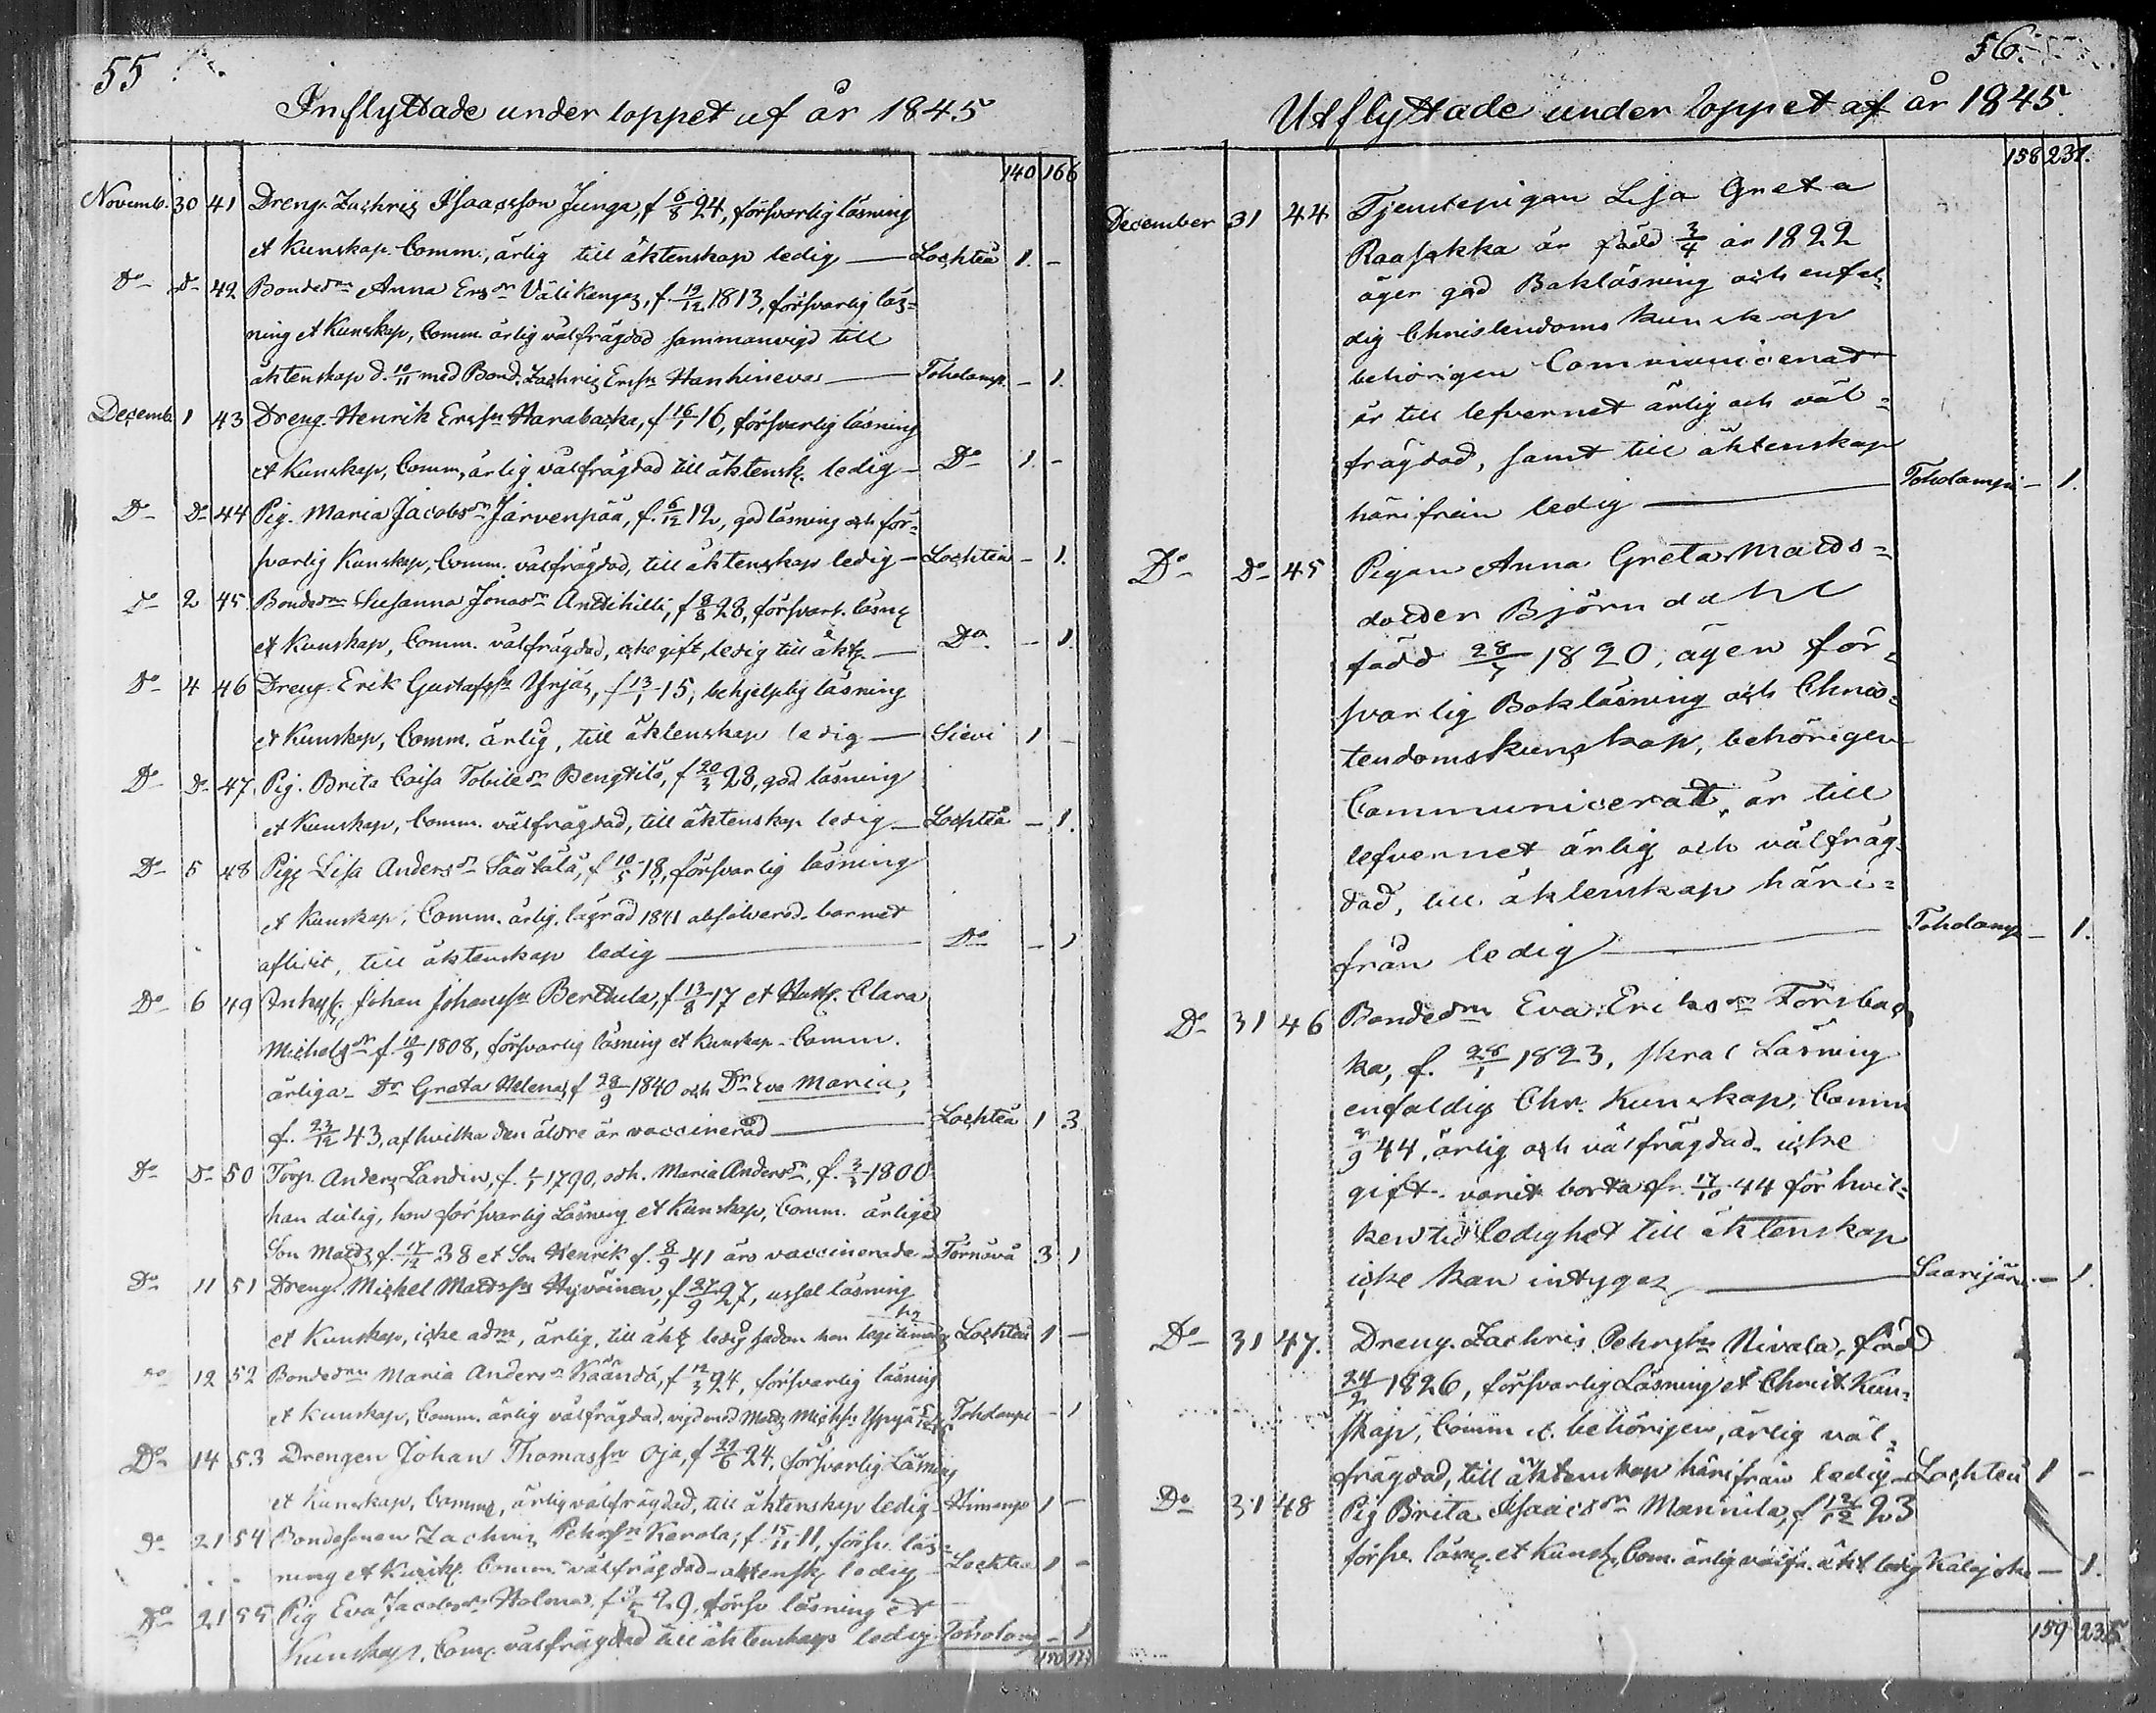 55
Inflyttade under loppet af år 1845
140 166
Novemb. 30 41 Dreng. Zachris Isaacsson Junga, f 6/8 24, försvarlig läsning
et Kunskap. Comm., ärlig till äktenskap ledig — Lochteå 1. -
Do Do 42 Bondedn Anna Ersdn Välikangas, f. 19/12 1813, försvarlig läs=
ning et Kunskap, Comm. ärlig välfrägdad sammanvigd till
äktenskap d. 10/11 med Bond. Zachris Erssn Hanhineva — Toholamp. - 1.
Decemb. 1 43 Dreng. Henrik Erssn Harabacka, f 16/1 16, försvarlig läsning
et Kunskap, Comm, ärlig välfrägdad till äktensk. ledig - Do 1. -
Do Do 44 Pig. Maria Jacobsdn Järvenpää, f. 6/12 12, god läsning och för=
svarlig Kunskap, Comm. välfrägdad, till äktenskap ledig - Lochteå - 1.
Do 2 45 Bondedn Susanna Jonasdn Anttihilli, f 8/8 28, försvarl. läsn.
et Kunskap, Comm. välfrägdad, icke gift, ledig till äkt. — Do. - 1.
Do 4 46 Dreng. Erik Gustafssn Yrjäs, f 13/1 15, behjelplig läsning
et Kunskap, Comm. ärlig, till äktenskap ledig — Sievi 1 -
Do Do 47 Pig. Brita Caisa Tobiedn Bengtilä, f 20/3 28, god läsning
et Kunskap, Comm. välfrägdad, till äktenskap ledig - Lochteå - 1.
Do 5 48 Pig. Lisa Andersdn Säutälä, f 10/5 18, försvarlig läsning
et Kunskap, Comm. ärlig, lägrad 1841 absolverad. barnet
aflidit, till äktenskap ledig — Do - 1
Do 6 49 Inhys. Johan Johanssn Berttula, f 13/8 17 et Hust. Clara
Michelsdn f. 10/9 1808, försvarlig läsning et Kunskap. Comm.
ärliga. Dr Greta Helena, f 28/9 1840 och Dr Eva Maria,
f. 23/12 43, af hvilka den äldre är vaccinerad — Lochteå 1 3
Do Do 50 Torp. Anders Landin, f. 1/1 1790, och. Maria Andersdn, f. 3/3 1800
han dålig, hon försvarlig Läsning et Kunskap, Comm. ärliga
Son Matts f. 17/12 38 et Son Henrik f. 8/9 41 äro vaccinerade - Ternävä 3 1
Do 11 51 Dreng. Michel Mattssn Hyvöinen, f 27/9 27, ussel läsning
et Kunskap, icke adm, ärlig, till äkt. ledig sedan han legitimerat sig Lochteå 1 -
Do 12 52 Bondedn Maria Andersdn Käändä, f 12/3 24, försvarlig läsning
et Kunskap, Comm. ärlig välfrägdad, vigd med Matts Michssn Yppyä Toholampi - 1
Do 14 53 Drengen Johan Thomassn Oja, f 22/6 24, försvarlig Läsning
et Kunskap, Comm., ärlig välfrägdad, till äktenskap ledig - Himango 1 -
Do 21 54 Bondesonen Zachris Pehrssn Kerola, f 15/11 11, försv. läs=
ning et Kunsk. Comm. välfrägdad - äktensk. ledig - Lochteå 1 -
Do 21 55 Pig Eva Jacobsdn Halma, f 29, försv läsning et
Kunskap. Com. välfrägdad till äktenskap ledig. Toholamp - 1
56.
Utflyttade under loppet af år 1845.
158 231.
December 31 44 Tjenstepigan Lisa Greta
Raasakka är född 3/4 år 1822
äger god Bokläsning och enfal=
dig Christendoms Kunskap
behörigen Communicerat
är till lefvernet ärlig och väl=
frägdad, samt till äktenskap
härifrån ledig — Toholampi - 1.
Do Do 45 Pigan Anna Greta Matts=
dotter Björndahl
född 28/7 1820, äger för=
svarlig Bokläsning och Chris=
tendomskunskap, behörigen
Communicerat, är till
lefvernet ärlig och välfräg=
dad, till äktenskap häri=
från ledig — Toholamp - 1.
Do 31 46 Bondedn Eva Ericsdn Torsbac
ka, f. 28/1 1823, skral Läsning
enfaldig Chr. Kunskap, Comm
9 44, ärlig och välfrägdad. icke
gift. varit borta fr. 17/10 44 för hvil=
ken tid ledighet till äktenskap
icke kan intygas — Saarijärv. - 1.
Do 31 47. Dreng. Zachris Pehrssn Nivala, född
24/2 1826, försvarlig Läsning et Christ. Kun=
skap, Comm et. behörigen, ärlig väl=
frägdad, till äktenskap härifrån ledig - Lochteå 1 -
Do 31 48 Pig Brita Isaacsdn Mannila, f 12/12 23
försv. läsn. et Kunsk. Com. ärlig välfr. äkt ledig Kalajoki - 1.
159 235